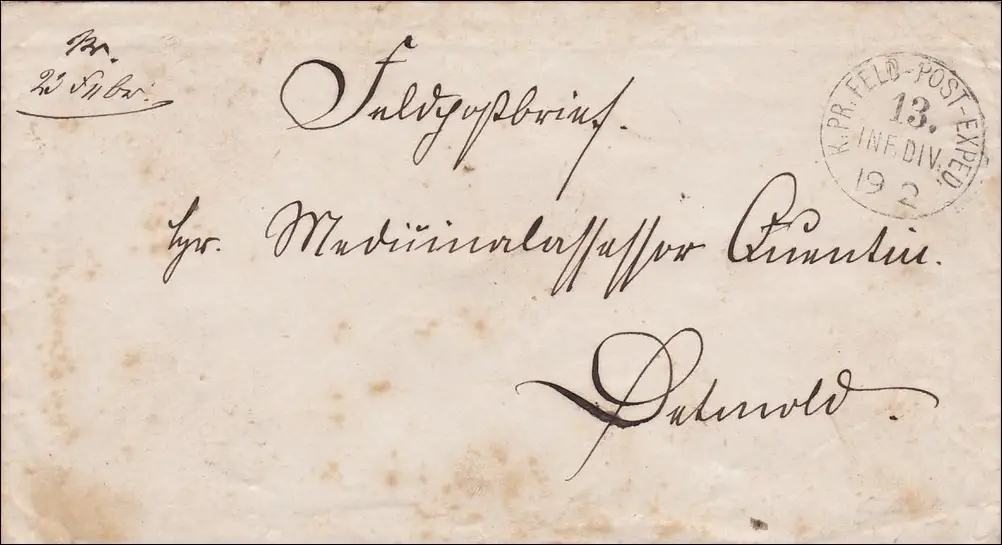 Pr.
23 Febr.
Feldpostbrief.
K. PR. FELD-POST-EXPED.
13.
INF. DIV.
19 2
Hr. Medicinalassessor Quentin.
Detmold.